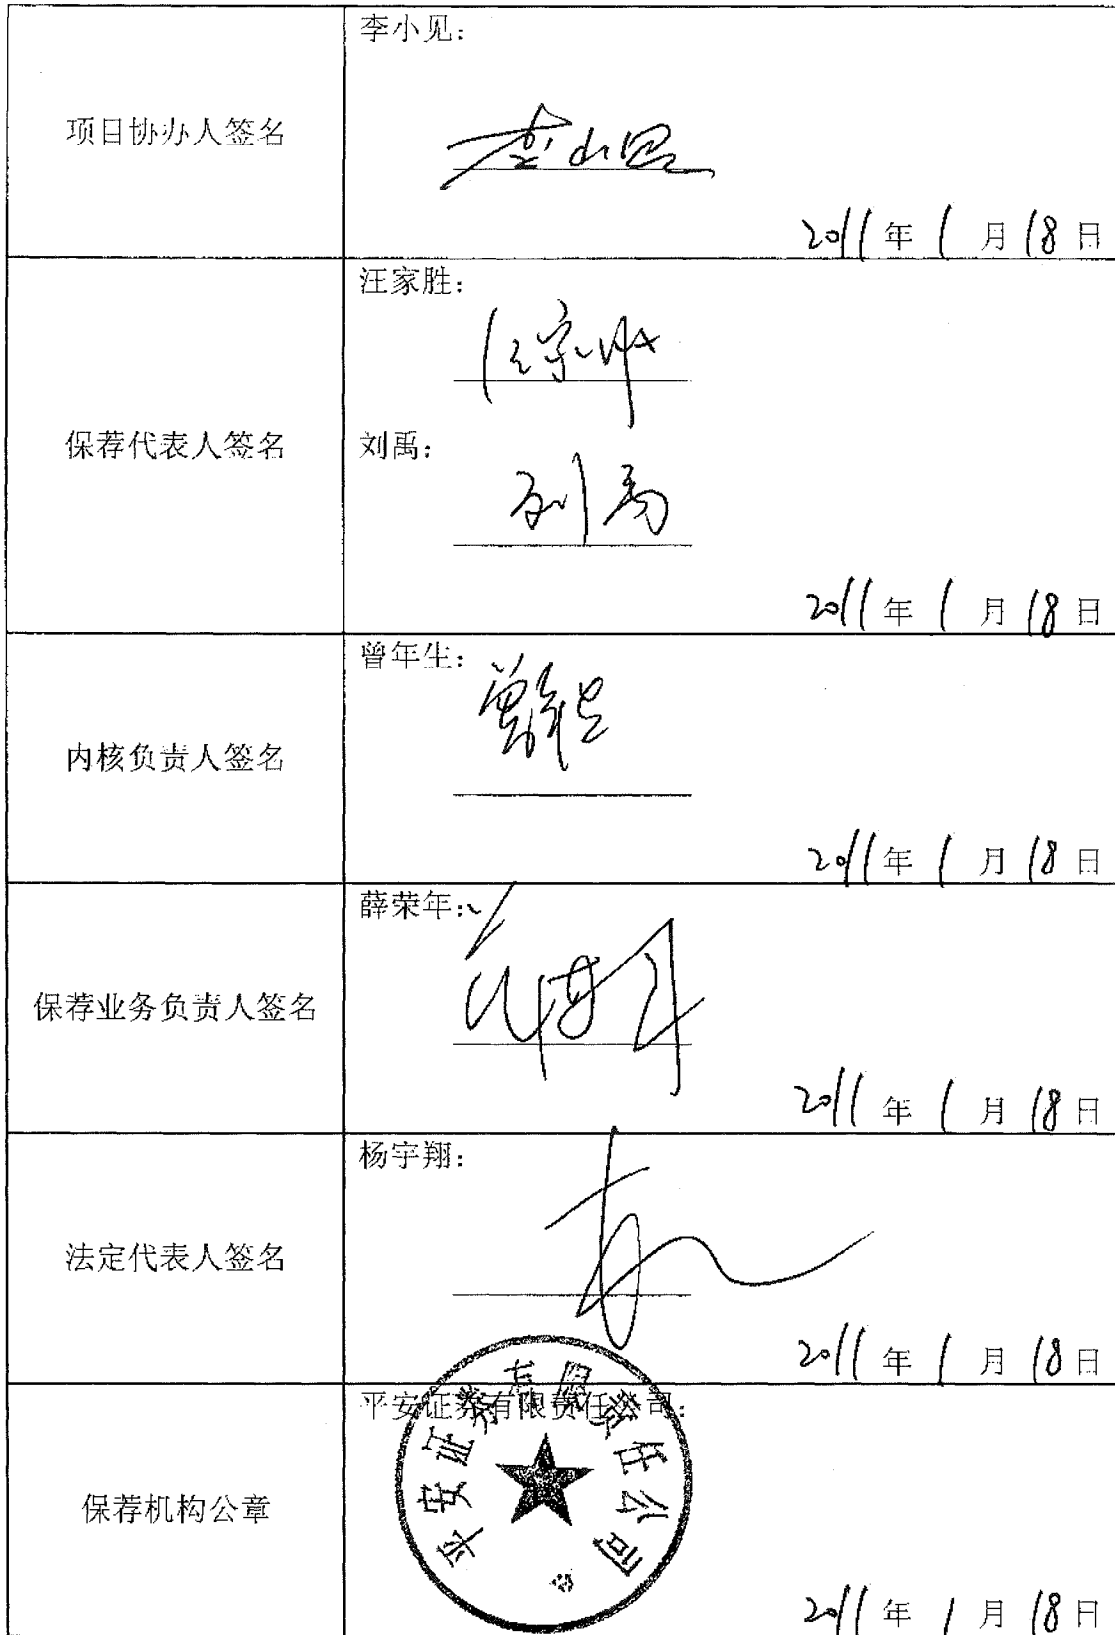 项目协办人签名
李小见：
李小见
2011年1月18日
保荐代表人签名
汪家胜：
汪家胜
刘禹：
刘禹
2011年1月18日
内核负责人签名
曾年生：
曾年生
2011年1月18日
保荐业务负责人签名
薛荣年：
薛荣年
2011年1月18日
法定代表人签名
杨宇翔：
2011年1月18日
保荐机构公章
平安证券有限责任公司：
平安证券有限责任公司
2011年1月18日